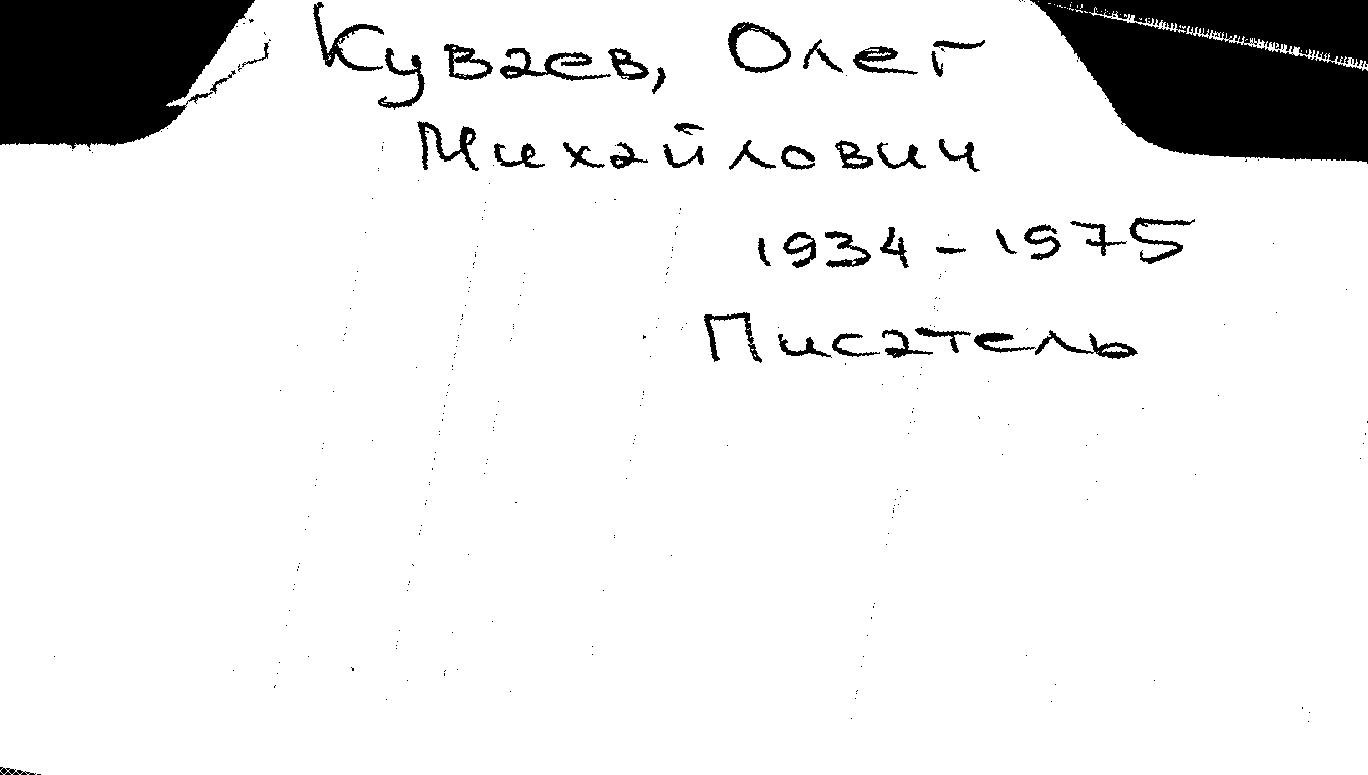 Куваев, Олег
Михайлович
1934 - 1975
Писатель